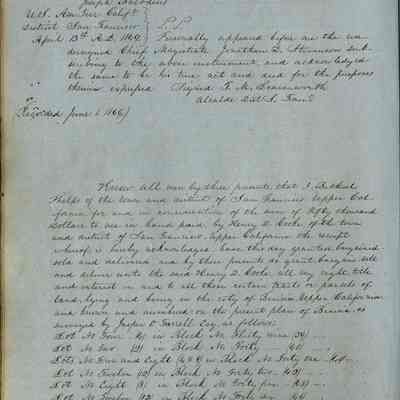 Joseph
U.S. America Calif.
District San Francisco
April 13th A.D. 1849
S.S.
Personally appeared before me the un-
dersigned Chief Magistrate Jonathan D. Stevenson sub-
scribing to the above instrument and acknowledged
the same to be his true act and deed for the purposes
therein expressed Signed T. M. Leavenworth
Alcalde Dist S. Fran
Recorded June 6
Know all men by these presents that I
Phelps of the town and district of San Francisco Upper Cal-
ifornia for and in consideration of the sum of fifty thousand
Dollars to me in hand paid by Henry D. Cooke of the town
and district of San Francisco Upper California the receipt
whereof is hereby acknowledged have this day granted bargained
sold and delivered and by these presents do grant bargain sell
and deliver unto the said Henry D. Cooke all my right title
and interest in and to all those certain tracts or parcels of
land lying and being in the city of Benicia Upper California
and known and numbered on the present plan of Benicia as
surveyed by Jasper O Farrell Esq as follows:
Lot No Four (4) in Block No Thirty nine (39)
Lot No Two (2) in Block No Forty (40)
Lots No Five and Eight (5 & 8) in Block No Forty one (41)
Lot No Twelve (12) in Block No Forty two (42)
Lot No Eight (8) in Block No Forty
Lot No Twelve (12) in Block No Forty